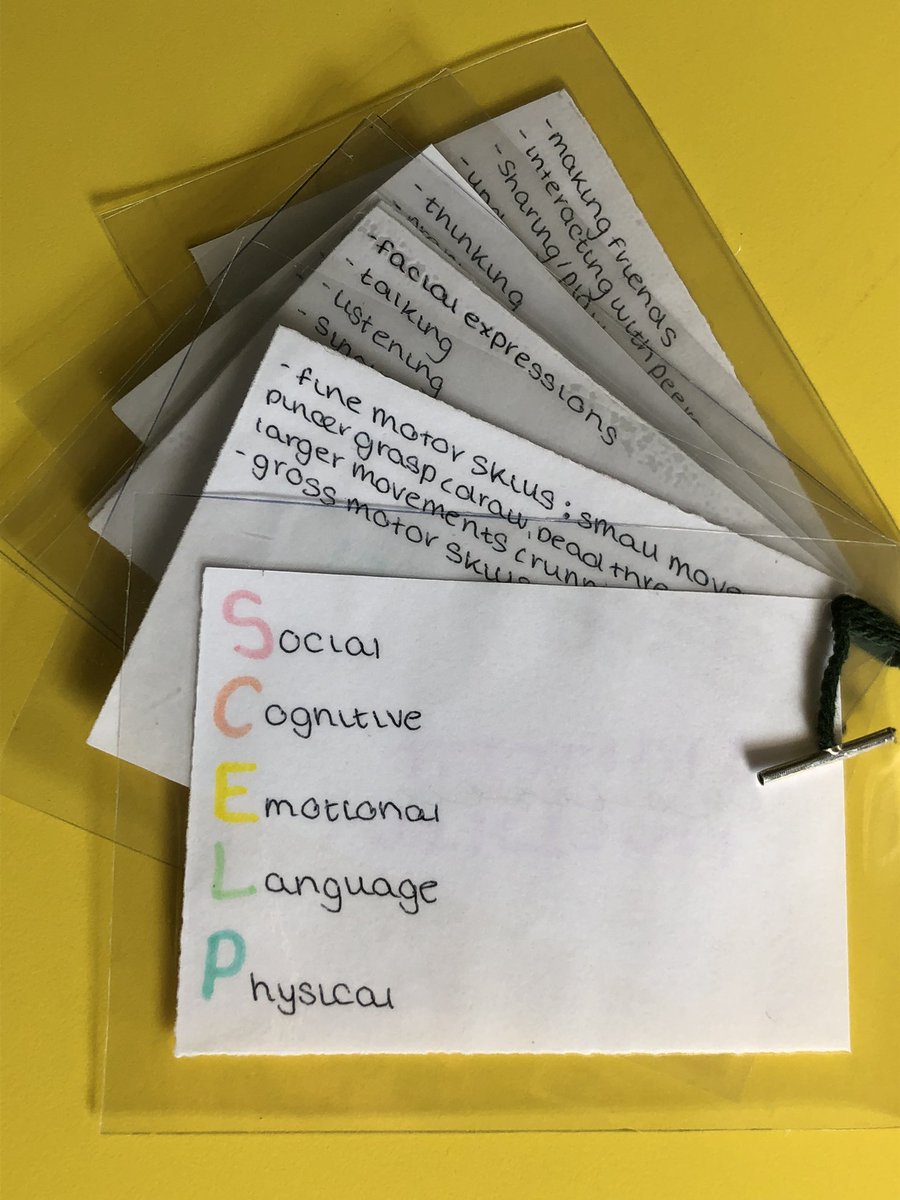 - making friends
- interacting with peers
- sharing/
-
- thinking
-
- facial expressions
- talking
- listening
-
- fine motor skills: small
pincer grasp (draw, bead
larger movements
- gross motor skills
Social
Cognitive
Emotional
Language
Physical